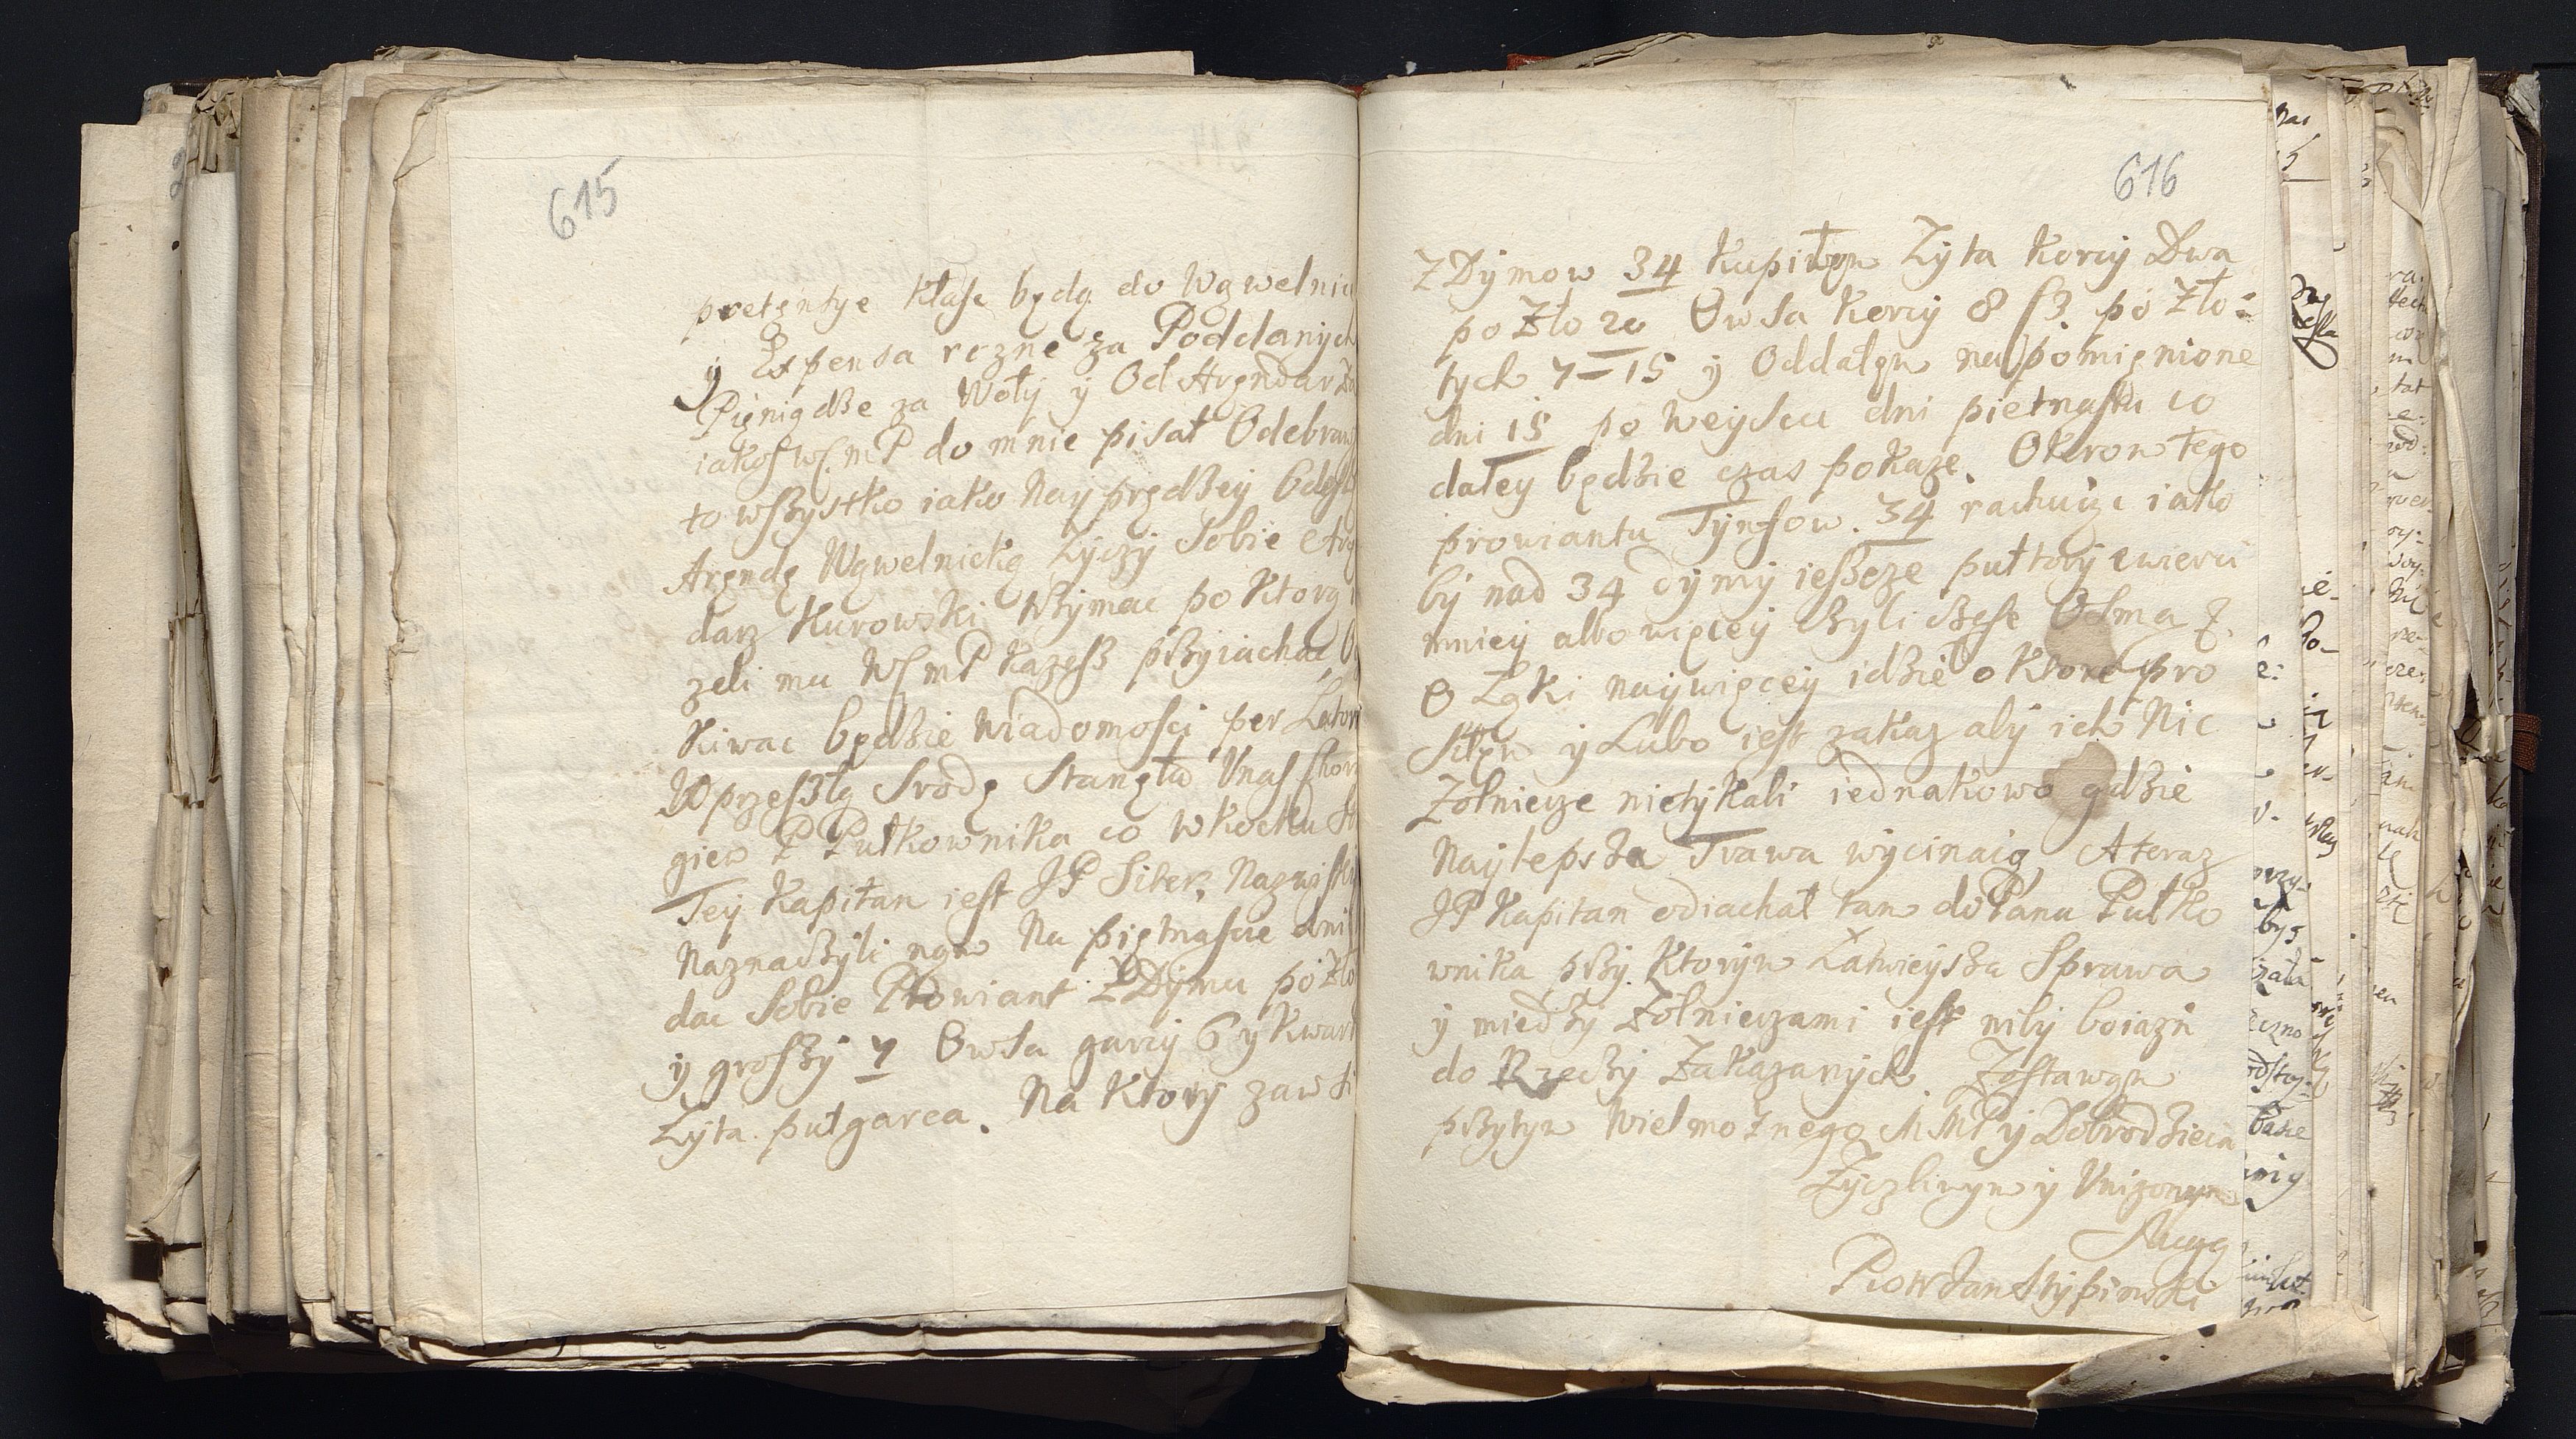 615
pretensye Kłaść będą do Wąwelnic
y Expensa rozne za Poddanych
Pieniądze za Woły y Od Arendarza
iakoś WSmP do mnie pisał Odebraw
to wszystko iako Nayprędzey Odeszl
Arendę Wąwelnicką Zyczy Sobie Aręn
darz Kurowski trzymac po Ktorą
zeli mu WSmP każesz przyiachac O
Kiwac będzie Wiadomości per Lator
W przeszłą Srodę Stanęła Unas Chorą
giew P Pułkownika co w Kocku St
Tey Kapitan iest JP Siler, Nazwisk
Naznaczyli nąm Na piętnaście dni
dac Sobie Prowiant Z Dymu po Zło
y groszy 7 Owsa garcy 6 y Kwart
Zyta pułgarca. Na Ktory zawsi
616
Z Dymow 34 Kupiłem Zyta Korcy Dwa
po Zło 20 Owsa Korcy 8 po Zło=
tych 7-15 y Oddałem na pomienione
dni 15 po Weyściu dni pietnastu co
daley będzie czas pokaze. Okrom tego
prowiantu Tynfow. 34 rachuiąc iako
by nad 34 dymy ieszcze pułtory cwierci
mniey albo więcey Byli
O Łąki naywięcey idzie o Ktore pro
siłem y Lubo iest zakaz aby ich Nic
Zołnierze nietykali iednakowo gdzie
Naylepsza Trawa wycinaią, A teraz
JP Kapitan odiachał tam do Pana Pułko
wnika przy Ktorym Łatwieysza Sprawa
y miedzy Zołnierzami iest niby boiazn
do Rzeczy Zakazanych. Zostawam
przytym Wielmożnego M MP y Dobrodzieia
Zyczliwym y Unizonym
Sługą
Piotr Jan Stypinski